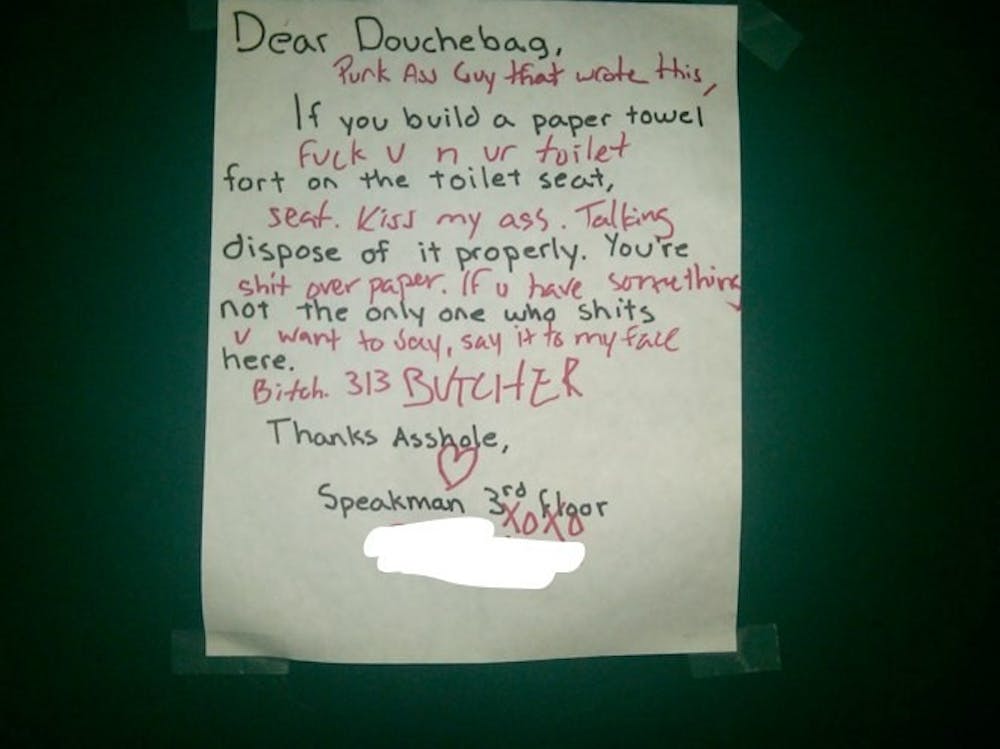 Dear Douchebag,
Punk Ass Guy that wrote this,
If you build a paper towel
Fuck U n ur toilet
fort on the toilet seat,
seat. Kiss my ass. Talking
dispose of it properly. You're
shit over paper. If u have something
not the only one who shits
u want to say, say it to my face
here.
Bitch. 313 BUTCHER
Thanks Asshole,
Speakman 3rd floor
XOXO